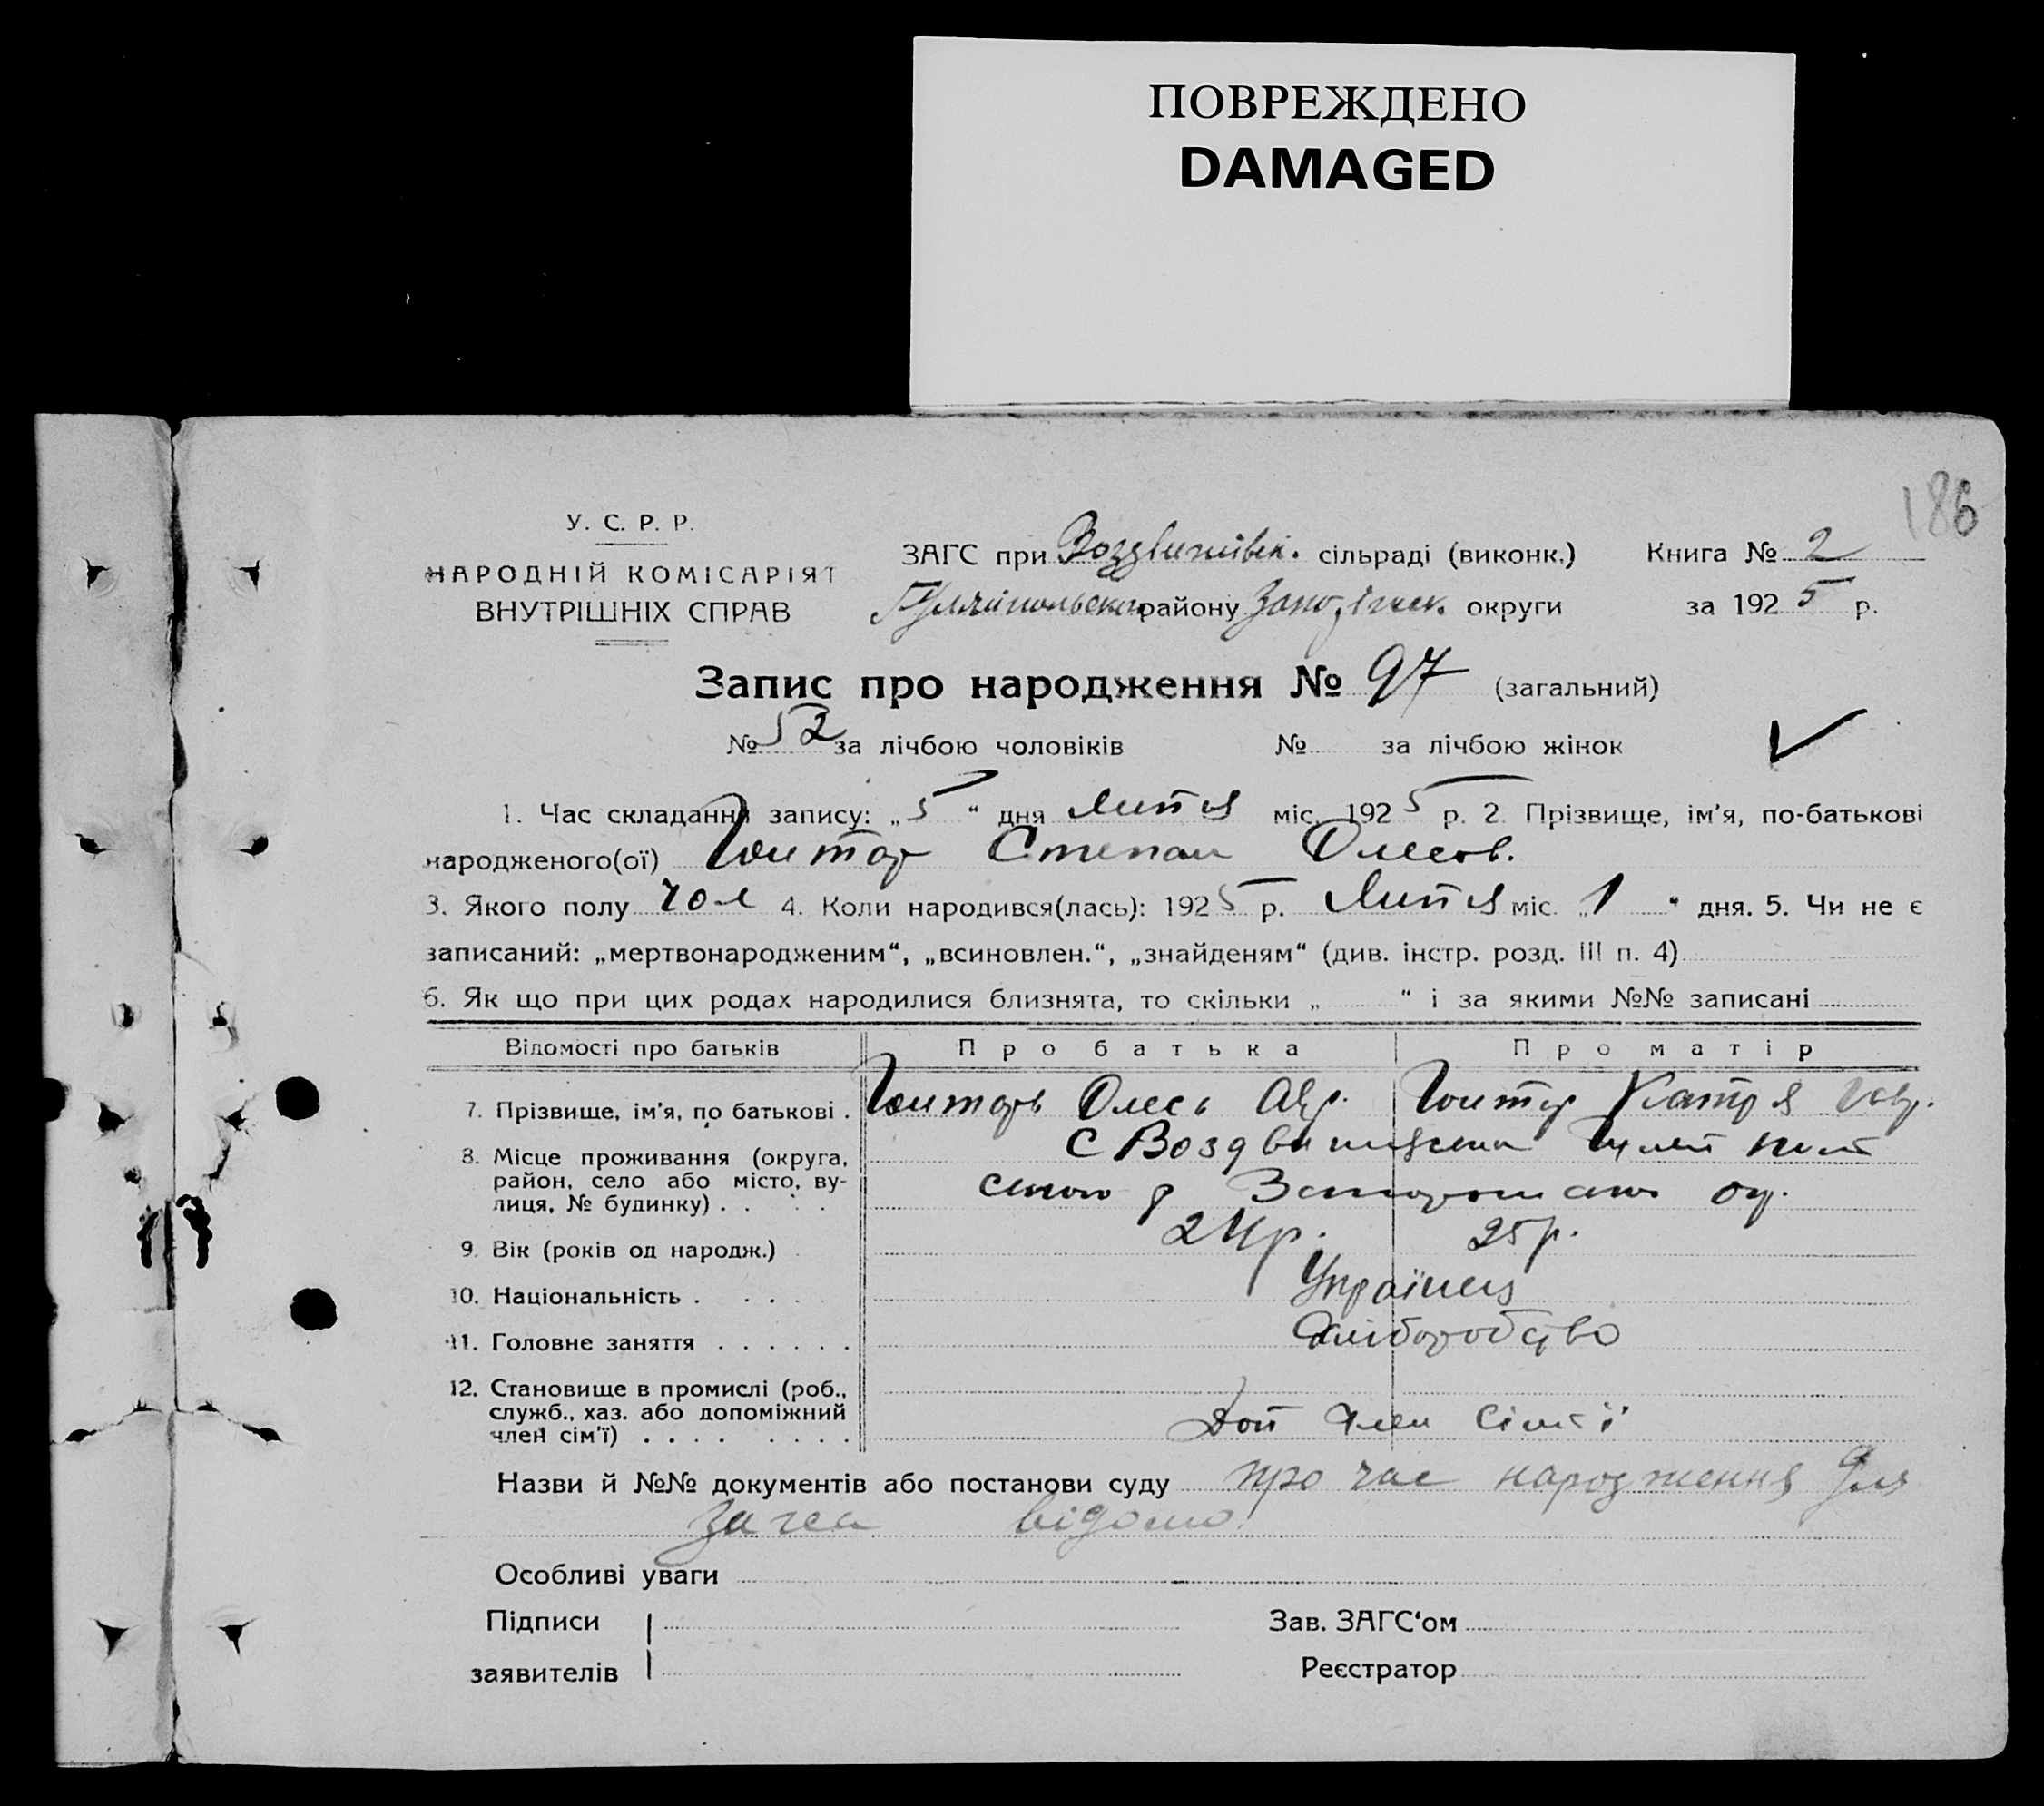 ПОВРЕЖДЕНО
DAMAGED
186
У. С. Р. Р.
НАРОДНІЙ КОМІСАРІЯТ
ВНУТРІШНІХ СПРАВ
ЗАГС при Воздвижівск. сільраді (виконк.) Книга № 2
Гуляйпольськ району Запоріжск. округи за 1925 р.
Запис про народження № 97 (загальний)
№ 52 за лічбою чоловіків № за лічбою жінок
1. Час складання запису: „5“ дня Липня міс. 1925 р. 2. Прізвище, ім'я, по-батькові
народженого(ої) Степан Олесів.
3. Якого полу чол 4. Коли народився(лась): 1925 р. Липня міс. „1“ дня. 5. Чи не є
записаний: „мертвонародженим“, „всиновлен.“, „знайденям“ (див. інстр. розд. III п. 4)
6. Як що при цих родах народилися близнята, то скільки „ “ і за якими №№ записані
Відомості про батьків Про батька Про матір
7. Прізвище, ім'я, по батькові . Олесь Катря
8. Місце проживання (округа,
район, село або місто, ву-
лиця, № будинку) . . . .
9. Вік (років од народж.) 24 р. 25 р.
10. Національність . . . . Українец
11. Головне заняття . . . . . . Хліборобство
12. Становище в промислі (роб.,
служб., хаз. або допоміжний
член сім'ї) . . . . . . . . Доп член сімї
Назви й №№ документів або постанови суду про час народження для
загса відомо
Особливі уваги
Підписи
заявителів
Зав. ЗАГС‘ом
Реєстратор